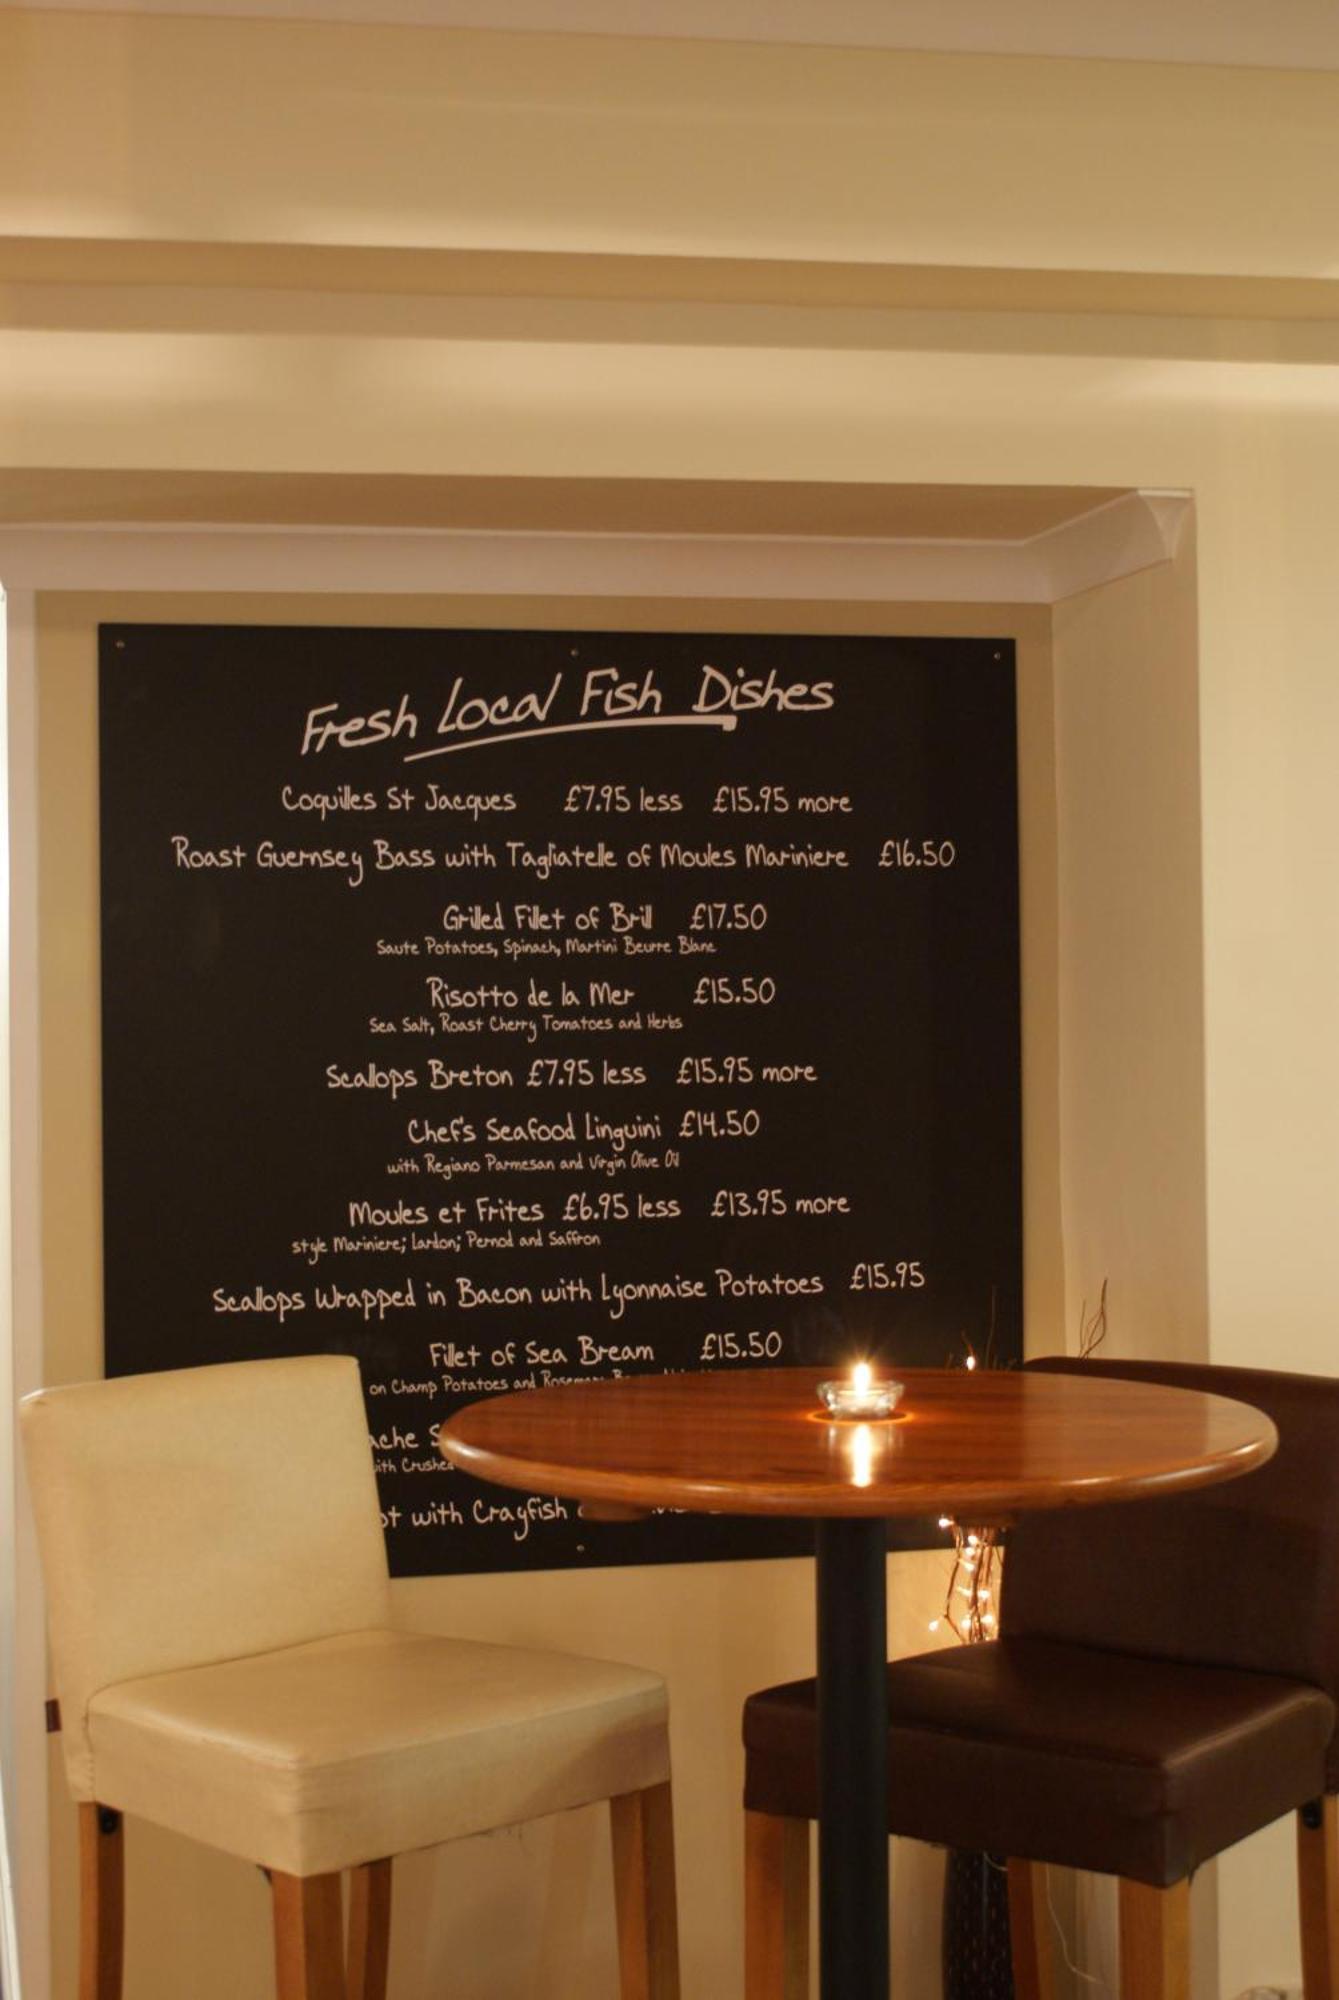 Fresh Local Fish Dishes
Coquilles St Jacques £7.95 less £15.95 more
Roast Guernsey Bass with Tagliatelle of Moules Mariniere £16.50
Grilled Fillet of Brill £17.50
Saute Potatoes, Spinach, Martini Beurre Blanc
Risotto de la Mer £15.50
Sea Salt, Roast Cherry Tomatoes and Herbs
Scallops Breton £7.95 less £15.95 more
Chef's Seafood Linguini £14.50
with Regiano Parmesan and Virgin Olive Oil
Moules et Frites £6.95 less £13.95 more
style Mariniere; Lardon; Pernod and Saffron
Scallops Wrapped in Bacon with Lyonnaise Potatoes £15.95
Fillet of Sea Bream £15.50
on Champ Potatoes and Rosemary
with Crushed
with Crayfish